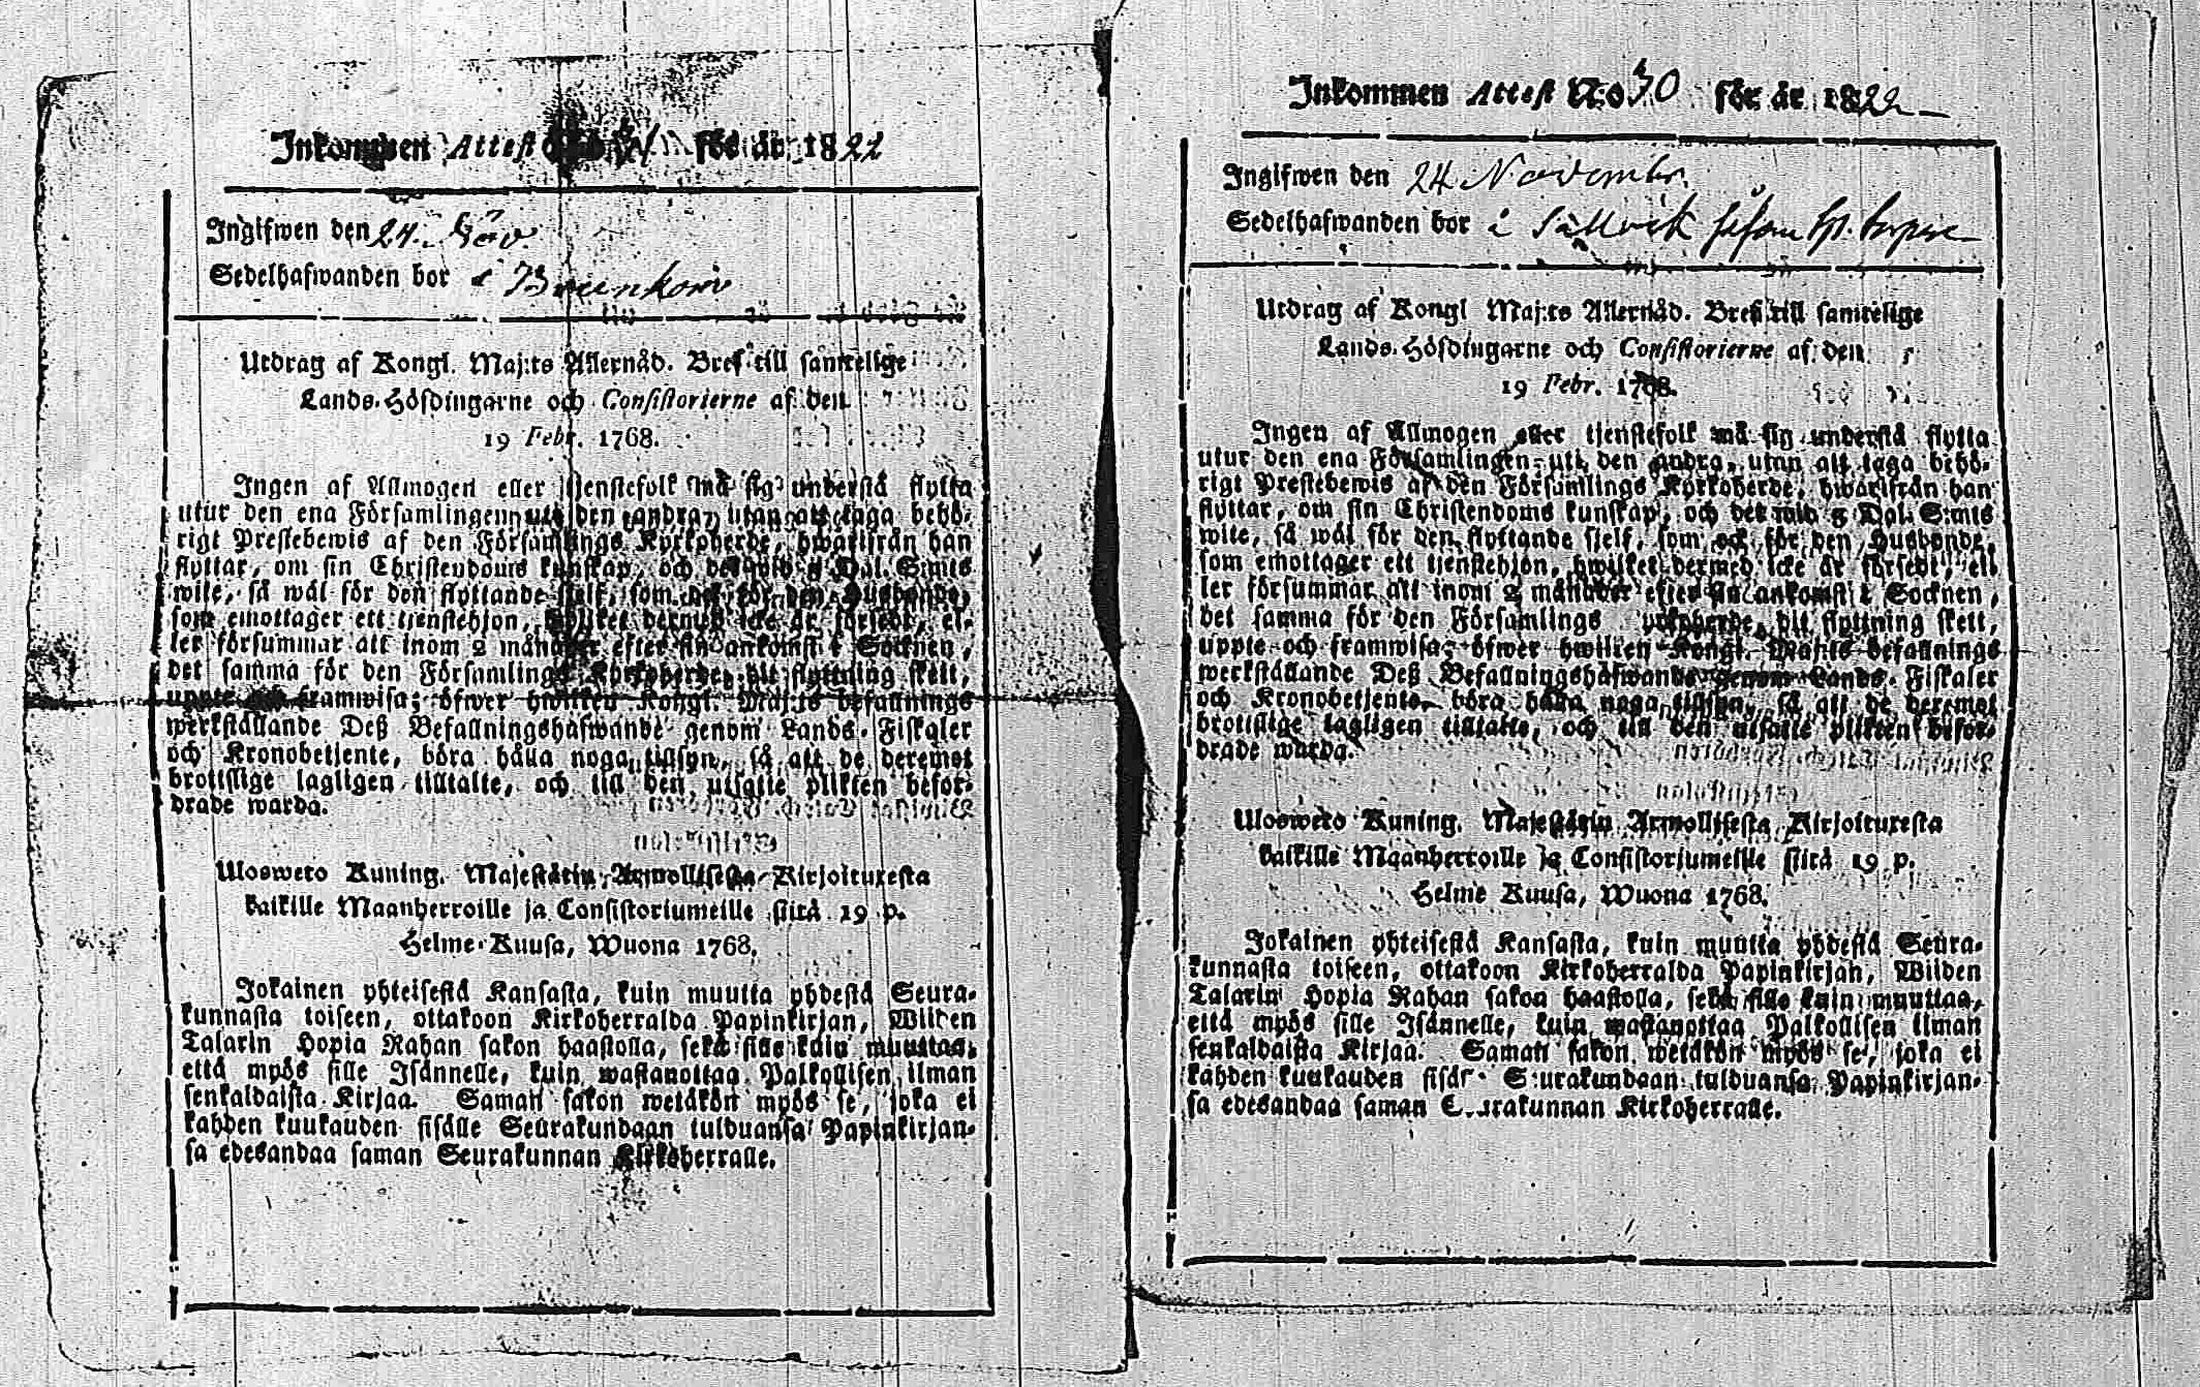 Inkommen Attest för år 1822
Ingifwen den 24. Nov
Sedelhafwanden bor i
Utdrag af Kongl. Maj:ts Allernåd. Bref till samtelige
Lands-Höfdingarne och Consistorierne af den
19 Febr. 1768.
Ingen af Allmogen eller tjenstefolk må sig understå flytta
utur den ena Församlingen uti den andra, utan att taga behö-
rigt Prestebewis af den Församlings Kyrkoherde, hwarifrån han
flyttar, om sin Christendoms kunskap, och det wid 8 Dal. S:mts
wite, så wäl för den flyttande sjelf, som ock för den Husbonde,
som emottager ett tjenstehjon, hwilket dermed icke är försedt, el-
ler försummar att inom 2 månader efter sin ankomst i Socknen,
det samma för den Församlings Kyrkoherde, dit flyttning skett,
uppte och framwisa; öfwer hwilken Kongl. Maj:ts befallnings
werkställande Deß Befallningshafwande genom Lands-Fiskaler
och Kronobetjente, böra hålla noga tillsyn, så att de deremot
brottslige lagligen tilltalte, och till den utsatte plikten befor-
drade warda.
Ulosweto Kuning. Majestätin Armollisesta Kirjoituxesta
kaikille Maanherroille ja Consistoriumeille siitä 19 p.
Helme-Kuusa, Wuona 1768.
Jokainen yhteisestä Kansasta, kuin muutta yhdestä Seura-
kunnasta toiseen, ottakoon Kirkoherralda Papinkirjan, Wiiden
Talarin Hopia Rahan sakon haastolla, sekä sille kuin muuttaa,
että myös sille Isännelle, kuin wastanottaa Palkollisen ilman
senkaldaista Kirjaa. Saman sakon wetäkön myös se, joka ei
kahden kuukauden sisälle Seurakundaan tulduansa Papinkirjan-
sa edesandaa saman Seurakunnan Kirkoherralle.
Inkommen Attest N:o 30 för år 1822
Ingifwen den 24 Novembr.
Sedelhafwanden bor i
Utdrag af Kongl Maj:ts Allernåd. Bref till samtelige
Lands-Höfdingarne och Consistorierne af den
19 Febr. 1768.
Ingen af Allmogen eller tjenstefolk må sig understå flytta
utur den ena Församlingen uti den andra, utan att taga behö-
rigt Prestebewis af den Församlings Kyrkoherde, hwarifrån han
flyttar, om sin Christendoms kunskap, och det wid 8 Dal. S:mts
wite, så wäl för den flyttande sjelf, som ock för den Husbonde,
som emottager ett tjenstehjon, hwilket dermed icke är försedt, el-
ler försummar att inom 2 månader efter sin ankomst i Socknen,
det samma för den Församlings Kyrkoherde, dit flyttning skett,
uppte och framwisa; öfwer hwilken Kongl. Maj:ts befallnings
werkställande Deß Befallningshafwande genom Lands-Fiskaler
och Kronobetjente, böra hålla noga tillsyn, så att de deremot
brottslige lagligen tilltalte, och till den utsatte plikten befor-
drade warda.
Ulosweto Kuning. Majestätin Armollisesta Kirjoituxesta
kaikille Maanherroille ja Consistoriumeille siitä 19 p.
Helme Kuusa, Wuona 1768.
Jokainen yhteisestä Kansasta, kuin muutta yhdestä Seura-
kunnasta toiseen, ottakoon Kirkoherralda Papinkirjan, Wiiden
Talarin Hopia Rahan sakon haastolla, sekä sille kuin muuttaa,
että myös sille Isännelle, kuin wastanottaa Palkollisen ilman
senkaldaista Kirjaa. Saman sakon wetäkön myös se, joka ei
kahden kuukauden sisäl Seurakundaan tulduansa Papinkirjan-
sa edesandaa saman Seurakunnan Kirkoherralle.